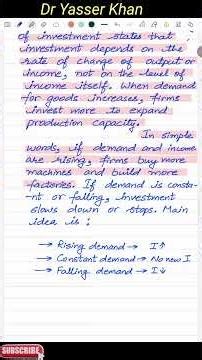 Dr Yasser Khan
of investment states that
investment depends on the
rate of change of output or
income, not on the level of
income itself. When demand
for goods increases, firms
invest more to expand
production capacity.
In simple
words, if demand and income
are rising, firms buy more
machines and build more
factories. If demand is consta-
nt or falling, investment
slows down or stops. Main
idea is :
→ Rising demand → I↑
→ Constant demand → No new I
→ Falling demand → I↓
SUBSCRIBE